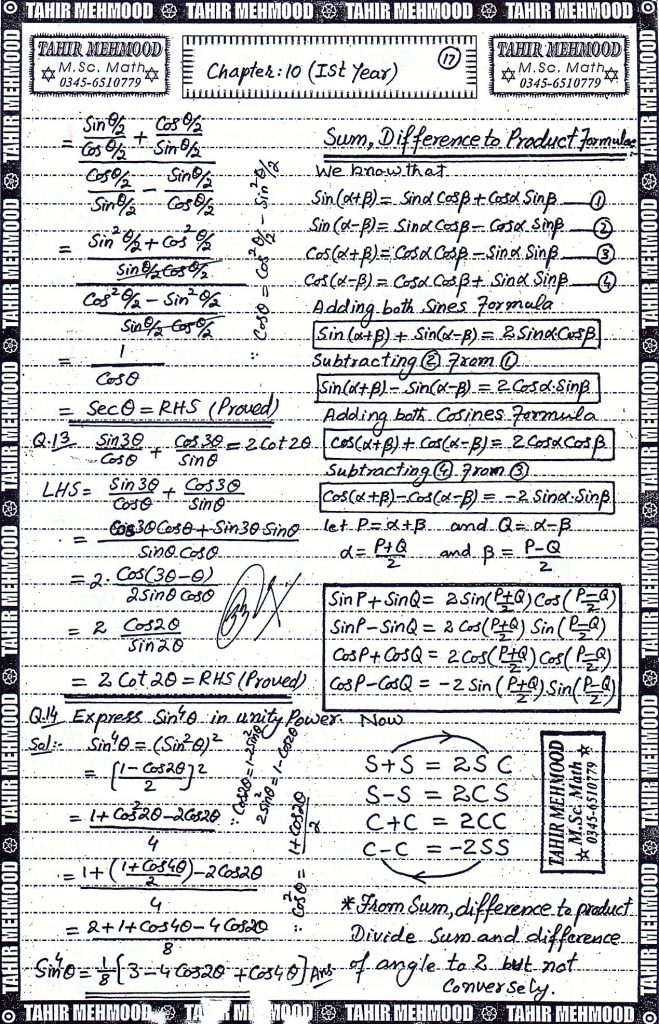 TAHIR MEHMOOD TAHIR MEHMOOD TAHIR MEHMOOD TAHIR MEHMOOD
TAHIR MEHMOOD
M.Sc. Math
0345-6510779
Chapter: 10 (Ist Year)
17
TAHIR MEHMOOD
M.Sc. Math
0345-6510779
= (Sinθ/2 / Cosθ/2 + Cosθ/2 / Sinθ/2) / (Cosθ/2 / Sinθ/2 - Sinθ/2 / Cosθ/2)
= ((Sin²θ/2 + Cos²θ/2) / (Sinθ/2 Cosθ/2)) / ((Cos²θ/2 - Sin²θ/2) / (Sinθ/2 Cosθ/2))
∵ Cosθ = Cos²θ/2 - Sin²θ/2
= 1 / Cosθ
= Secθ = RHS (Proved)
Q.13 Sin3θ / Cosθ + Cos3θ / Sinθ = 2Cot2θ
LHS = Sin3θ / Cosθ + Cos3θ / Sinθ
= (Cos3θ Cosθ + Sin3θ Sinθ) / (Sinθ Cosθ)
= 2. Cos(3θ-θ) / (2Sinθ Cosθ)
= 2 Cos2θ / Sin2θ
= 2 Cot2θ = RHS (Proved)
Q.14 Express Sin⁴θ in unity Power.
Sol:- Sin⁴θ = (Sin²θ)²
= [(1-Cos2θ) / 2]²
∵ Cos2θ = 1-2Sin²θ
2Sin²θ = 1-Cos2θ
= (1+Cos²2θ-2Cos2θ) / 4
= (1+((1+Cos4θ) / 2)-2Cos2θ) / 4
∵ Cos²θ = (1+Cos2θ) / 2
= (2+1+Cos4θ-4Cos2θ) / 8
Sin⁴θ = 1/8 [3-4Cos2θ+Cos4θ] Ans
Sum, Difference to Product Formulae:
We know that
Sin(α+β) = Sinα Cosβ + Cosα Sinβ — ①
Sin(α-β) = Sinα Cosβ - Cosα Sinβ — ②
Cos(α+β) = Cosα Cosβ - Sinα Sinβ — ③
Cos(α-β) = Cosα Cosβ + Sinα Sinβ — ④
Adding both Sines Formula
Sin(α+β) + Sin(α-β) = 2Sinα.Cosβ
Subtracting ② From ①
Sin(α+β) - Sin(α-β) = 2Cosα.Sinβ
Adding both Cosines Formula
Cos(α+β) + Cos(α-β) = 2CosαCosβ
Subtracting ④ From ③
Cos(α+β)-Cos(α-β) = -2Sinα.Sinβ
let P = α+β and Q = α-β
α = (P+Q) / 2 and β = (P-Q) / 2
SinP + SinQ = 2Sin((P+Q)/2) Cos((P-Q)/2)
SinP - SinQ = 2Cos((P+Q)/2) Sin((P-Q)/2)
CosP + CosQ = 2Cos((P+Q)/2) Cos((P-Q)/2)
CosP - CosQ = -2Sin((P+Q)/2) Sin((P-Q)/2)
Now
S+S = 2SC
S-S = 2CS
C+C = 2CC
C-C = -2SS
TAHIR MEHMOOD
M.Sc. Math
0345-6510779
*From Sum, difference to product
Divide Sum and difference
of angle to 2 but not
Conversely.
TAHIR MEHMOOD TAHIR MEHMOOD TAHIR MEHMOOD
TAHIR MEHMOOD